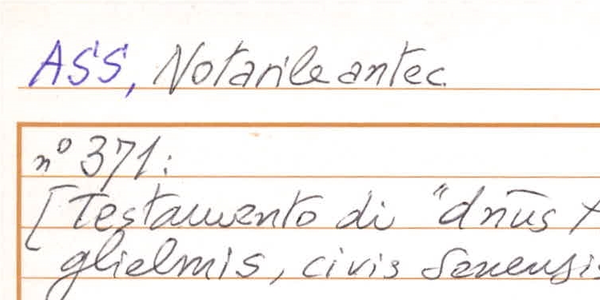 ASS, Notarile antec.
n° 371:
[Testamento di "dn̄us
glielmis, civis Senensis